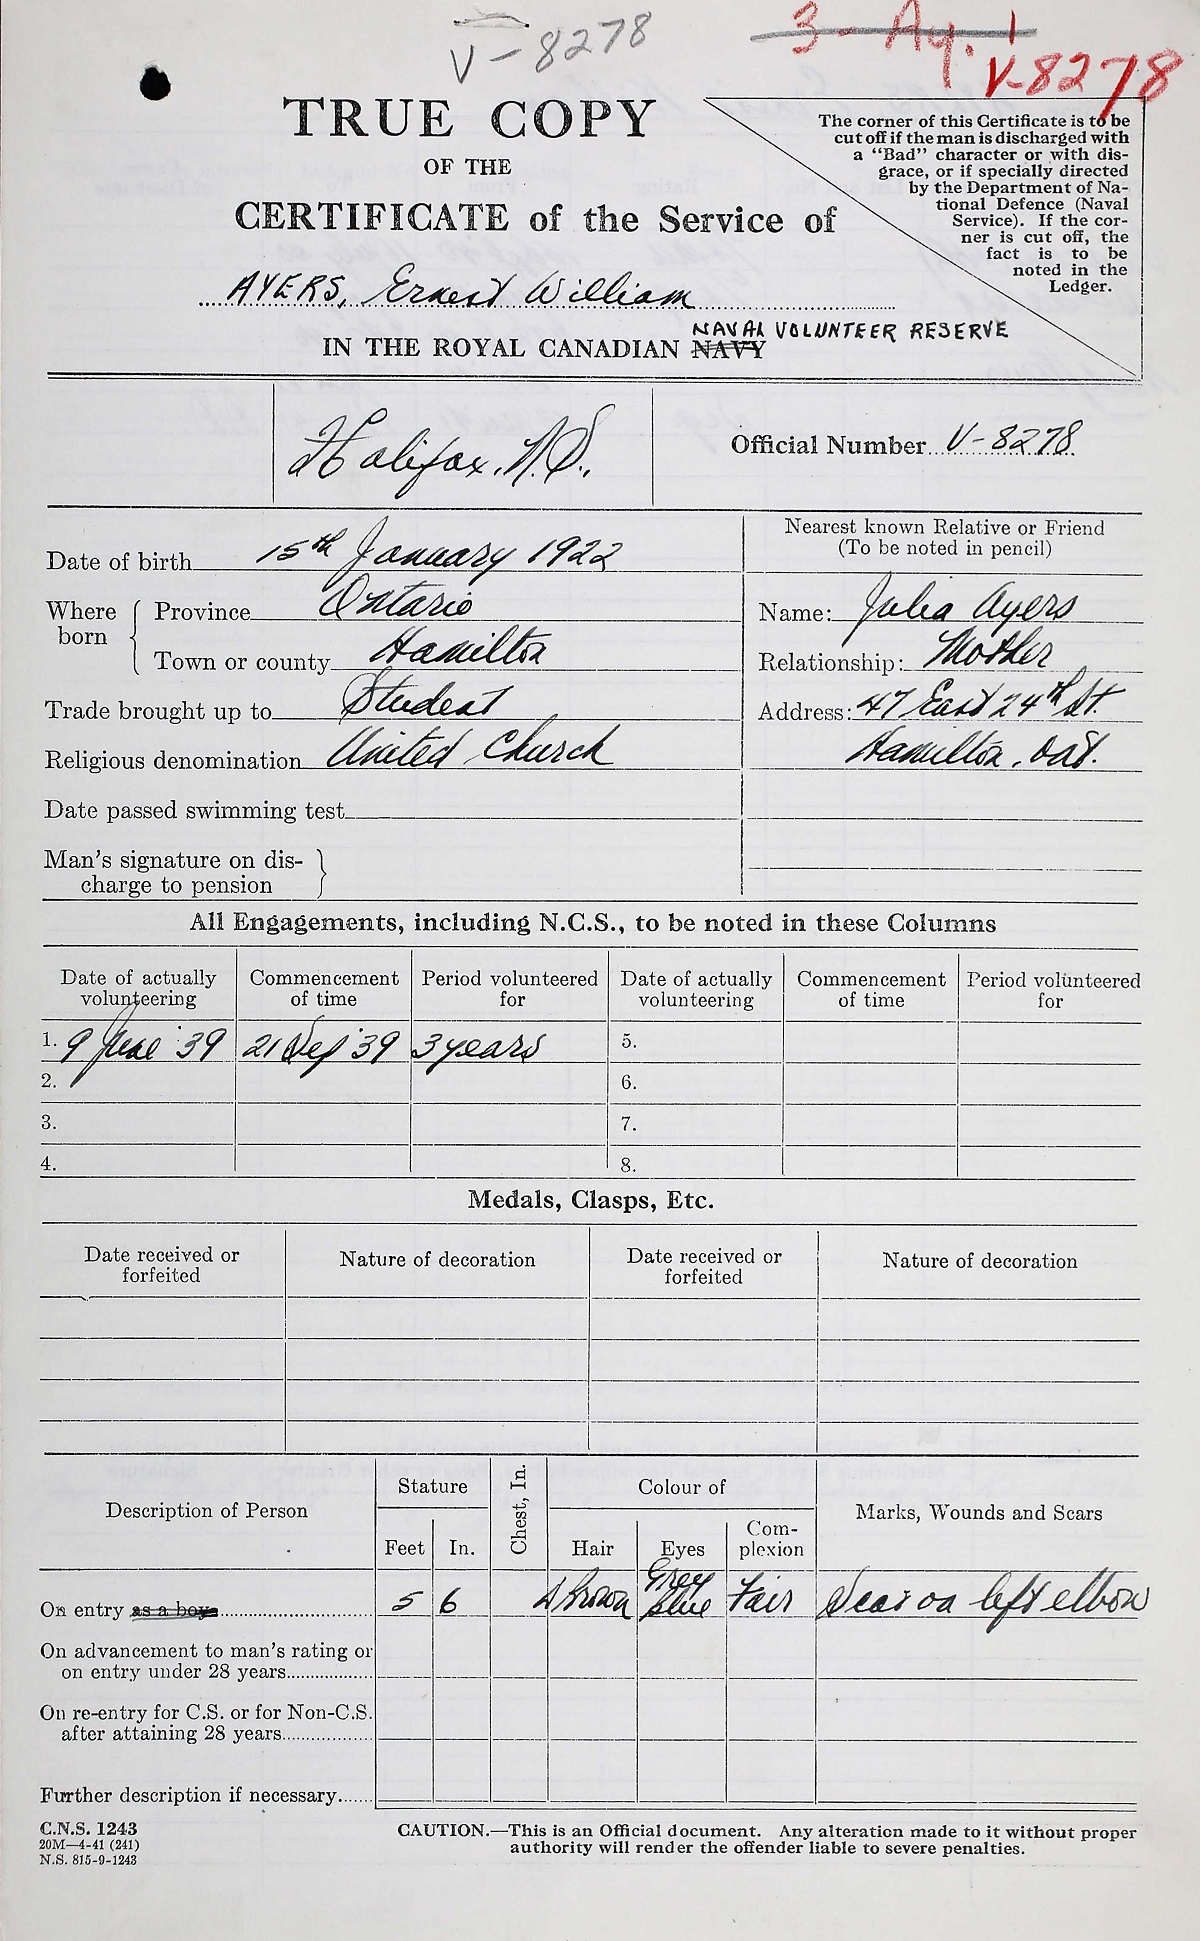 V-8278
3-Ay. 1
V-8278
TRUE COPY
OF THE
CERTIFICATE of the Service of
AYERS, Ernest William
NAVAL VOLUNTEER RESERVE
IN THE ROYAL CANADIAN NAVY
The corner of this Certificate is to be
cut off if the man is discharged with
a "Bad" character or with dis-
grace, or if specially directed
by the Department of Na-
tional Defence (Naval
Service). If the cor-
ner is cut off, the
fact is to be
noted in the
Ledger.
Halifax, N.S.,
Official Number V-8278
Date of birth 15th January 1922
Where born { Province Ontario
Town or county Hamilton
Trade brought up to Student
Religious denomination United Church
Date passed swimming test
Man's signature on dis-
charge to pension }
Nearest known Relative or Friend
(To be noted in pencil)
Name: Julia Ayers
Relationship: Mother
Address: 47 East 24th St.
Hamilton, Ont.
All Engagements, including N.C.S., to be noted in these Columns
Date of actually volunteering Commencement of time Period volunteered for Date of actually volunteering Commencement of time Period volunteered for
1. 9 June '39 21 Sep '39 3 years 5.
2. 6.
3. 7.
4. 8.
Medals, Clasps, Etc.
Date received or forfeited Nature of decoration Date received or forfeited Nature of decoration
Description of Person Stature Chest, In. Colour of Marks, Wounds and Scars
Feet In. Hair Eyes Com-plexion
On entry as a boy 5 6 D Brown Grey Blue Fair Scar on left elbow
On advancement to man's rating or
on entry under 28 years
On re-entry for C.S. or for Non-C.S.
after attaining 28 years
Further description if necessary
C.N.S. 1243
20M—4-41 (241)
N.S. 815-9-1243
CAUTION.—This is an Official document. Any alteration made to it without proper
authority will render the offender liable to severe penalties.